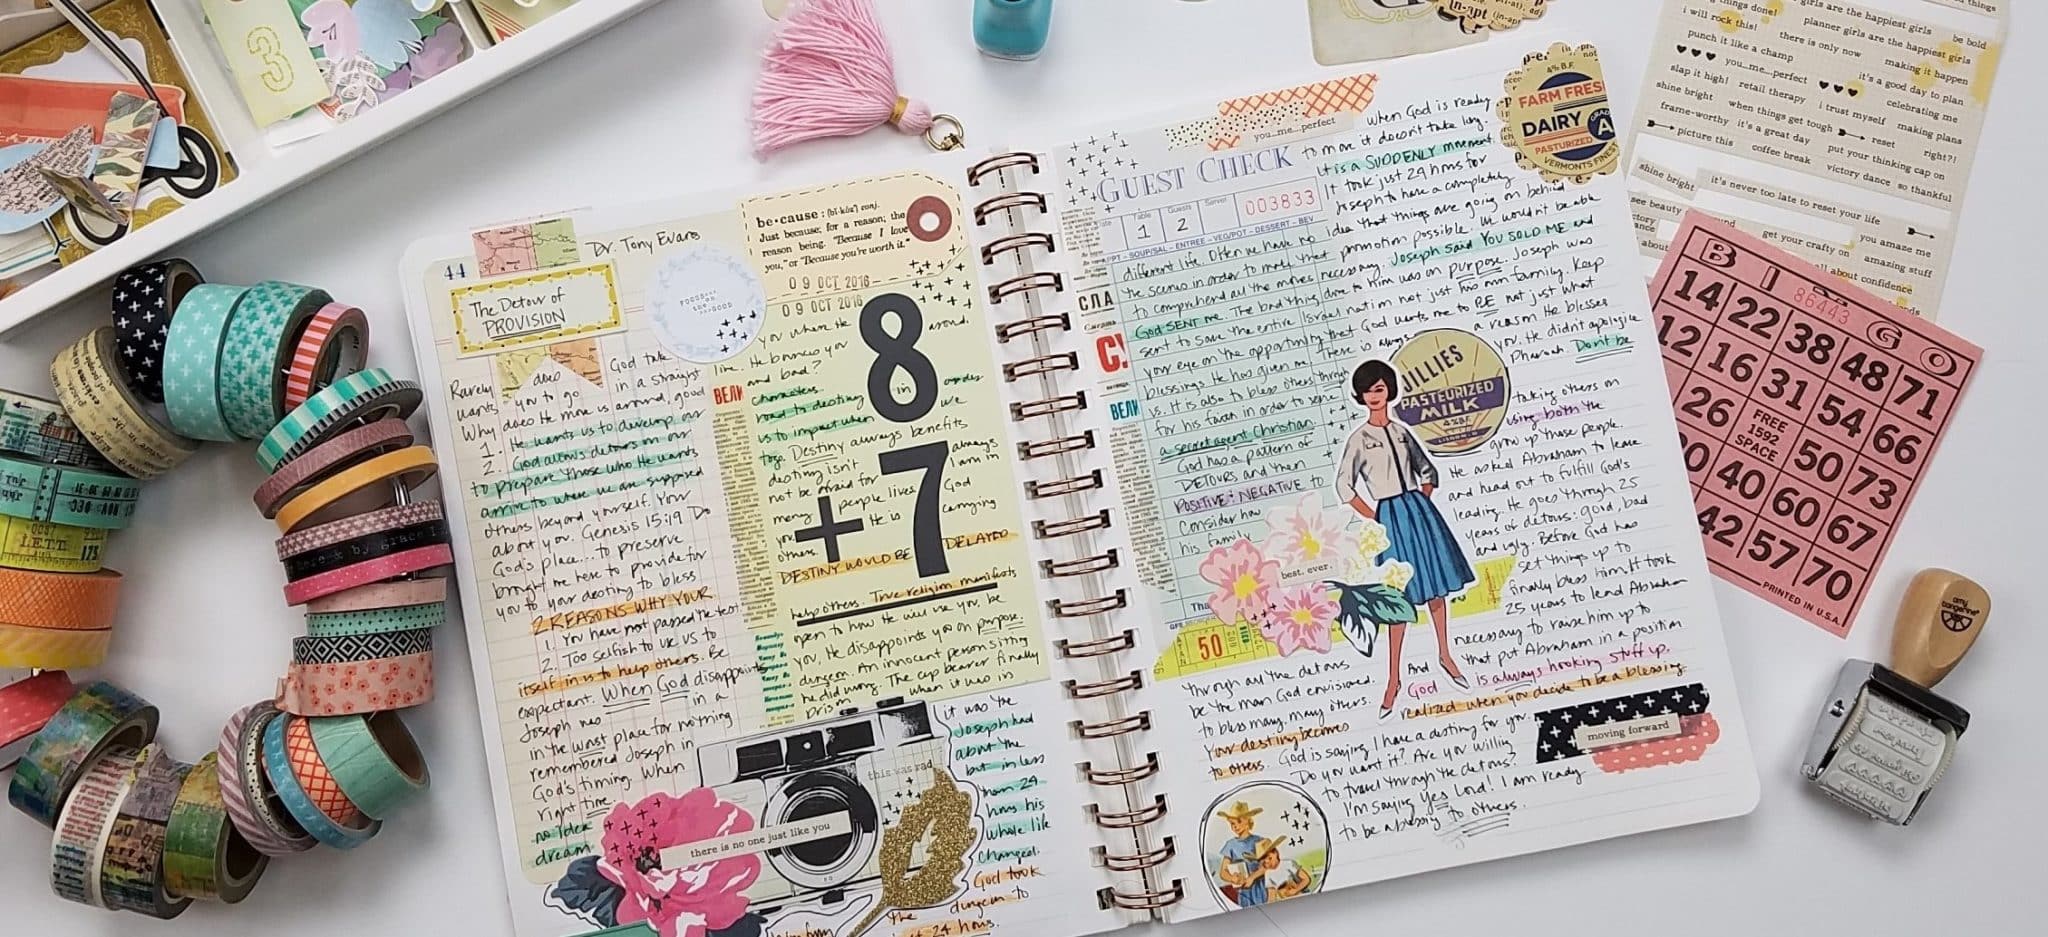 3
44
Dr. Tony Evans
The Detour of
PROVISION
be•cause : (bĭ-kôz') conj.
Just because; for a reason; the
reason being. "Because I love
you," or "Because you're worth it."
09 OCT 2016
09 OCT 2016
FOCUS
on
the
GOOD
Rarely does God take
wants you to go in a straight
Why does He move us around, good
1. He wants us to develop our
2. God allows detours in our
to prepare those who He wants
arrive to where we are supposed
others beyond yourself. Your
about you. Genesis 15:19 Do
God's place... to preserve
brought me here to provide for
you to your destiny to bless
2 REASONS WHY YOUR
1. You have not passed the test.
2. Too selfish to use us to
itself in us to help others. Be
expectant. When God disappoints
Joseph was in a
in the worst place for nothing
remembered Joseph in
God's timing. When
right time.
no idea
dream
you where He around.
like. He bounces you
and bad?
characters.
road to destiny in order
us to impact when we
Destiny always benefits
destiny isn't always
not be afraid for I am in
many people lives God
you. He is carrying
others.
DESTINY WOULD BE DELAYED
8
+7
ВЕЛИ
help others. True religion manifests
open to how He will use you, be
you. He disappoints you on purpose.
dungeon. An innocent person sitting
he did wrong. The cup bearer finally
prison when it was in
it was the
Joseph had
about the
but in less
than 24
hours his
whole life
changed.
God took
The dungeon to
24 hours.
this was rad
there is no one just like you
you...me...perfect
GUEST CHECK
Date
Table
Guests
Server
1
2
003833
APPT-SOUP/SAL-ENTREE-VEG/POT-DESSERT-BEV
СЛА
ВЕЛИ
When God is ready
to move it doesn't take long
It is a SUDDENLY movement.
It took just 24 hours for
Joseph to have a completely
different life. Often we have no idea that things are going on behind
the scenes in order to make that promotion possible. We wouldn't be able
to comprehend all the moves necessary. Joseph said YOU SOLD ME and
God SENT me. The bad thing done to Him was on purpose. Joseph was
sent to save the entire Israel nation not just his own family. Keep
your eye on the opportunity that God wants me to BE not just what
blessings He has given me. There is always a reason He blesses
us. It is also to bless others through you. He didn't apologize
for his faith in order to serve Pharaoh. Don't be
a secret agent Christian.
God has a pattern of taking others on
DETOURS and then using both the
POSITIVE & NEGATIVE to grow up those people.
Consider how He asked Abraham to leave
his family and head out to fulfill God's
leading. He goes through 25
years of detours: good, bad
and ugly. Before God has
set things up to
finally bless him. It took
25 years to lead Abraham
necessary to raise him up to
And that put Abraham in a position
God is always hooking stuff up.
realized when you decide to be a blessing
FARM FRESH
DAIRY
GRADE
A
PASTEURIZED
VERMONTS FINEST
JILLIES
PASTEURIZED
MILK
best. ever.
50
Through all the detours
be the man God envisioned.
to bless many, many others.
Your destiny becomes
to others. God is saying I have a destiny for you.
Do you want it? Are you willing
to travel through the detours?
I'm saying Yes Lord! I am ready
to be a blessing to others.
moving forward
things done!
girls are the happiest girls
i will rock this!
planner girls are the happiest girls
be bold
punch it like a champ
there is only now
making it happen
you...me...perfect
it's a good day to plan
slap it high!
retail therapy
i trust myself
celebrating me
shine bright
when things get tough
reset
making plans
frame-worthy
it's a great day
put your thinking cap on
right?!
picture this
coffee break
victory dance
so thankful
shine bright
it's never too late to reset your life
see beauty
get your crafty on
you amaze me
all about confidence
amazing stuff
B I N G O
86443
14 22 38 48 71
12 16 31 54 66
26 FREE 1592 SPACE 50 73
40 60 67
42 57 70
PRINTED IN U.S.A.
amy
tangerine
LETT